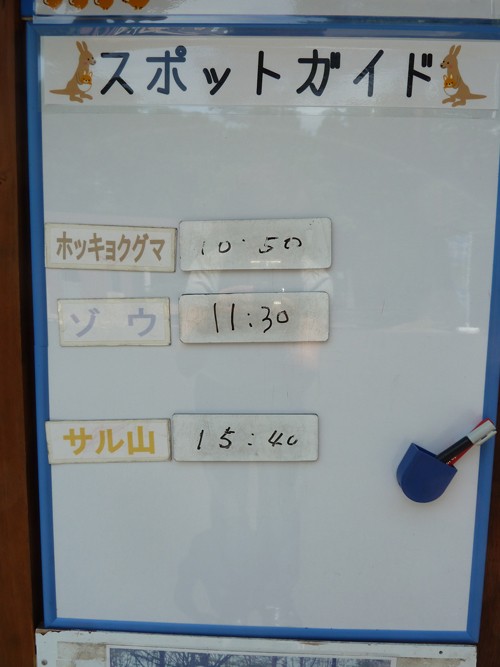 スポットガイド
ホッキョクグマ 10:50
ゾウ 11:30
サル山 15:40